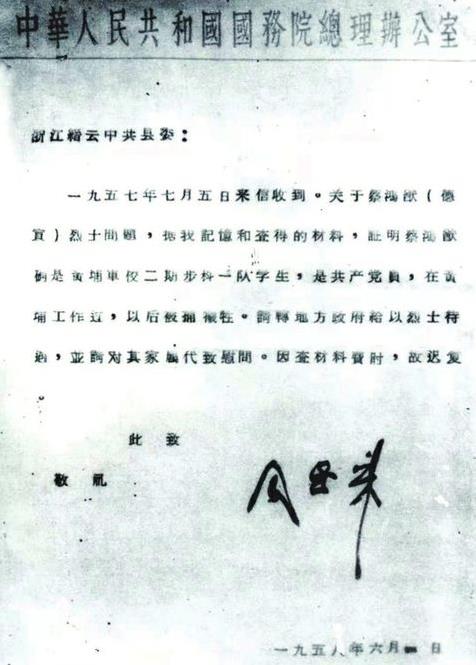 中華人民共和國國務院總理辦公室
浙江縉云中共县委：
一九五七年七月五日来信收到。关于蔡鴻猷（德
宣）烈士問題，据我記憶和查得的材料，証明蔡鴻猷
确是黄埔軍校二期步科一队学生，是共产党員，在黄
埔工作过，以后被捕犧牲。請轉地方政府給以烈士待
遇，並請对其家屬代致慰問。因查材料費时，故迟复
。
此致
敬礼
周恩来
一九五八年六月 日